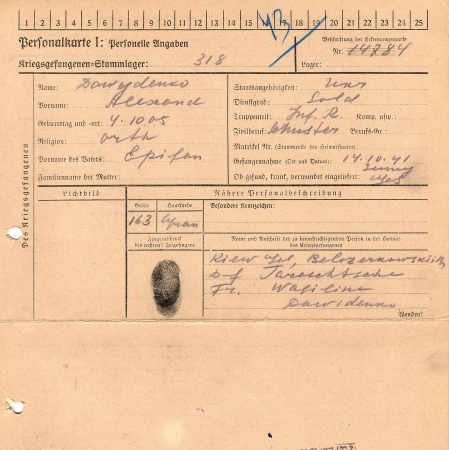 1 2 3 4 5 6 7 8 9 10 11 12 13 14 15 16 17 18 19 20 21 22 23 24 25
43
Personalkarte I: Personelle Angaben
Beschriftung der Erkennungsmarke
Nr. 14784
Kriegsgefangenen-Stammlager: 318
Lager:
Des Kriegsgefangenen
Name: Dawydenko
Vorname: Alexand
Geburtstag und -ort: 4.10 05
Religion: orth
Vorname des Vaters: Epifan
Familienname der Mutter:
Staatsangehörigkeit: Ukr
Dienstgrad: Sold
Truppenteil: Inf. R. Komp. usw.:
Zivilberuf: Schuster Berufs-Gr.:
Matrikel Nr. (Stammrolle des Heimatstaates):
Gefangennahme (Ort und Datum): 14.10.41
Ob gesund, krank, verwundet eingeliefert:
Lichtbild
Nähere Personalbeschreibung
Größe
Haarfarbe
Besondere Kennzeichen:
163
Fingerabdruck
des rechten! Zeigefingers
Name und Anschrift der zu benachrichtigenden Person in der Heimat
des Kriegsgefangenen
Kiew Geb, Belozerkowskii
D-f Taraschtsche
Fr. Wasiline
Dawidenko
Wenden!